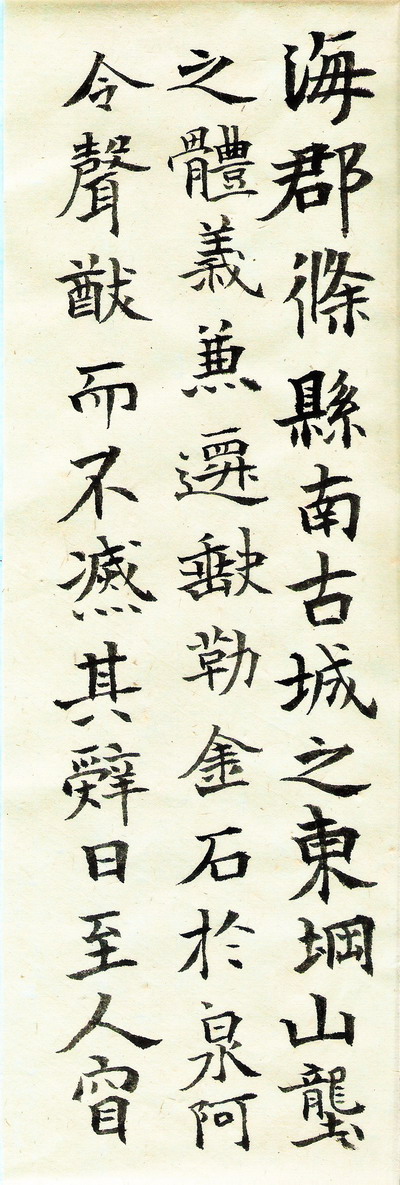 海郡條縣南古城之東堈山壟
之體義兼遷勒金石於泉阿
令聲猷而不滅其辭曰至人窅